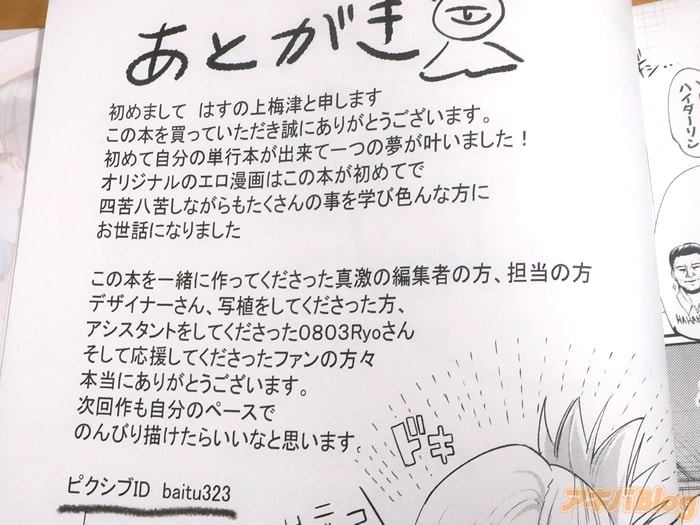 あとがき
初めまして はすの上梅津と申します
この本を買っていただき誠にありがとうございます。
初めて自分の単行本が出来て一つの夢が叶いました!
オリジナルのエロ漫画はこの本が初めてで
四苦八苦しながらもたくさんの事を学び色んな方に
お世話になりました
この本を一緒に作ってくださった真激の編集者の方、担当の方
デザイナーさん、写植をしてくださった方、
アシスタントをしてくださった0803Ryoさん
そして応援してくださったファンの方々
本当にありがとうございます。
次回作も自分のペースで
のんびり描けたらいいなと思います。
ピクシブID baitu323
ドキ
ハイターソン
アキバBlog